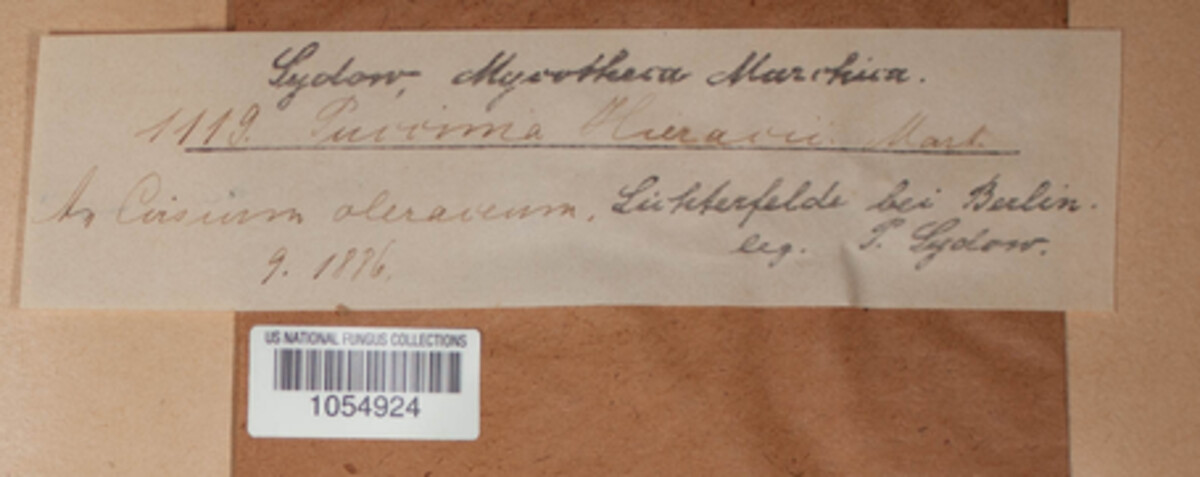 Sydow, Mycotheca Marchica.
1119. Puccinia Hieracii. Mart.
An Cirsium oleraceum. Lichterfelde bei Berlin.
9. 1886. leg. P. Sydow.
US NATIONAL FUNGUS COLLECTIONS
1054924